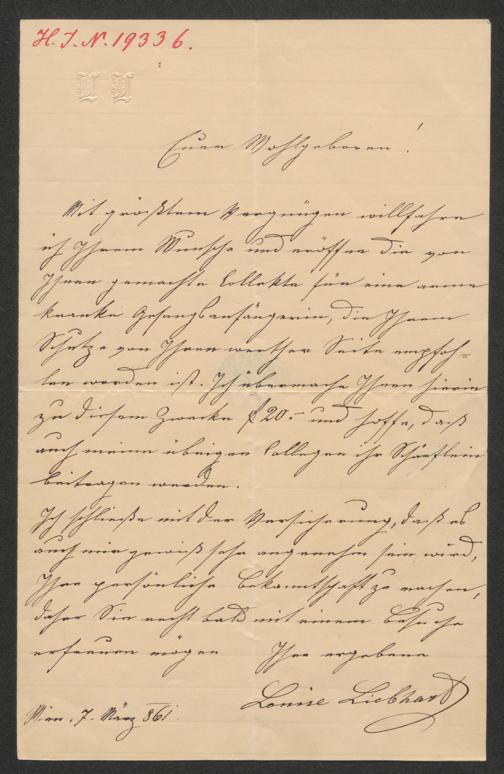 H. I. N. 19336.
L L
Euer Wohlgeboren!
Mit größtem Vergnügen willfahre
ich Ihrem Wunsche und eröffne die von
Ihnen gemachte Collekte für eine arme
kranke Gesangsanfängerin, die Ihrem
Schutze von Ihnen werther Seite empfoh-
len worden ist. Ich übermache Ihnen hierin
zu diesem Zwecke f 20.- und hoffe, daß
auch meine übrigen Collegen ihr Schärflein
beitragen werden.
Ich schließe mit der Versicherung, daß es
auch mir gewiß sehr angenehm sein wird,
Ihre persönliche Bekanntschaft zu machen,
daher Sie recht bald mit einem Besuche
erfreuen mögen
Ihre ergebene
Louise Liebhart
Wien, 7. März 861.